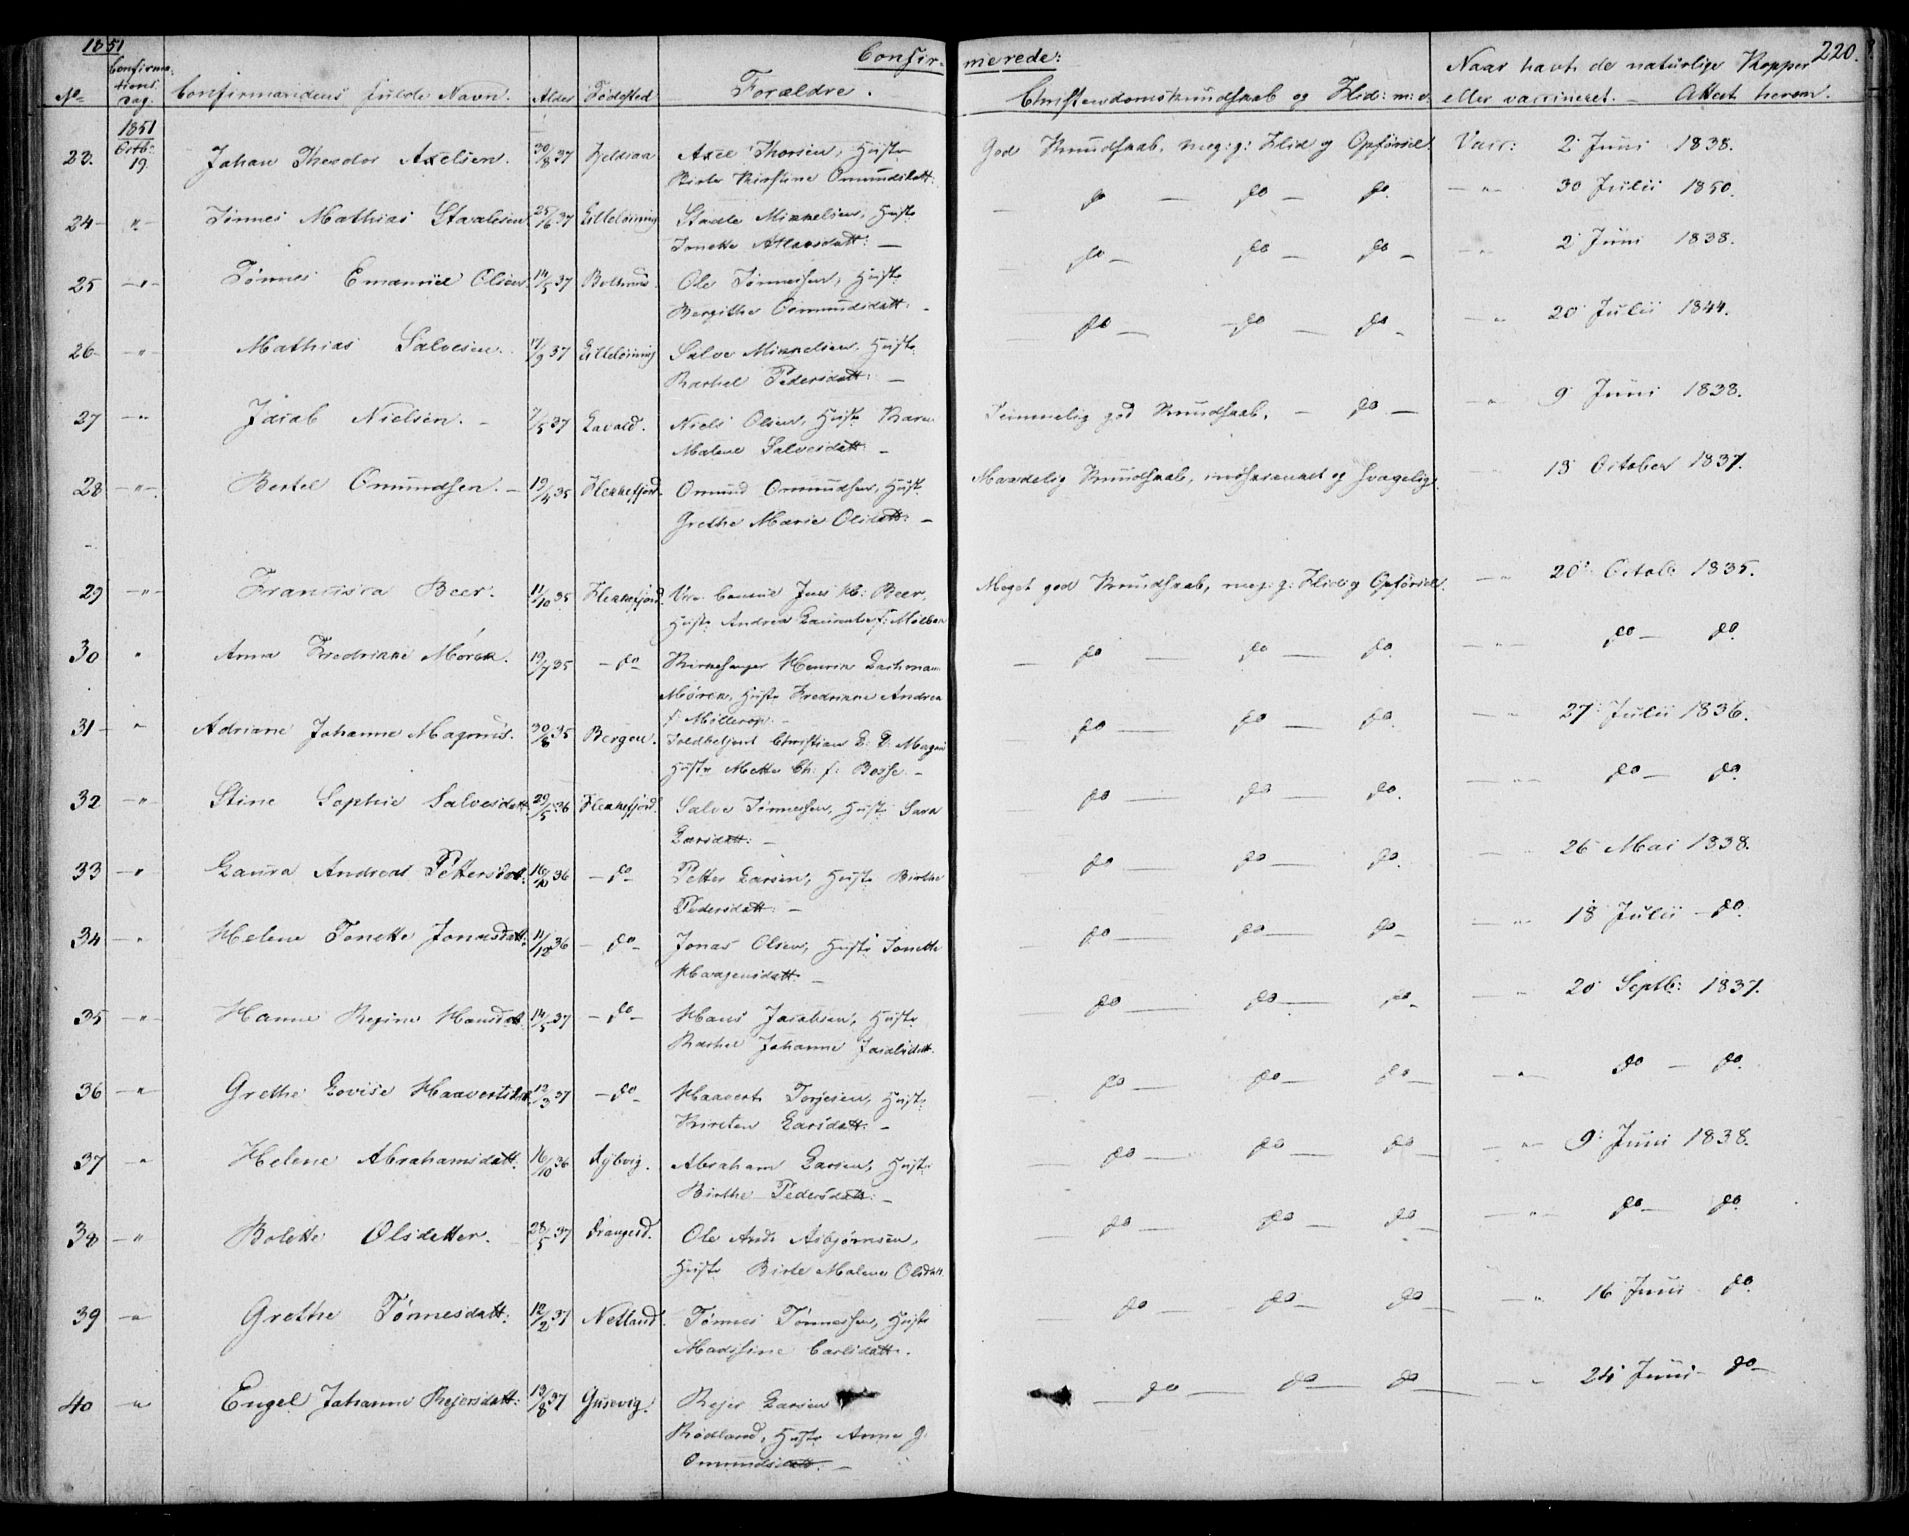 1851 Confir- merede: 220.
No Confirma-tions Dag. Confirmandens fulde Navn. Alder Fødested Forældre. Christendomskundskab og Flid: m: v: Naar havt de naturlige Kopper eller vaccineret. – Attest herom.
1851
23. Octb: 19. Johan Theodor Axelsen. 30/8 37 Axel Thorsen, Hustr. God Kundskab, meg: g: Flid og Opførsel Vacc: 2 Juni 1838.
Birte Kirstine Omundsdatt:
24 – " – Tønnes Mathias Staalesen 25/6 37 Staale Mikkelsen, Hustr. do – do – do. – " – 30 Julii 1850.
Tonette Atlaksdatt: –
25 – " – Tønnes Emanuel Olsen. 14/5 37 Ole Tønnessen, Hustr. do – do – do – – " 2 Juni 1838.
Bergithe Omundsdatt: –
26 – " – Mathias Salvesen. 17/9 37 Salve Mikkelsen, Hustr. do – do – do – – " 20 Julii 1844.
Rachel Pedersdatt: –
27 – " Jacob Nielsen. – 7/5 37 Lavold. Niels Olsen, Hustr Karen Temmelig god Kundskab, – do – – " 9 Juni 1838.
Malene Salvesdatt: –
28 – " – Bertel Omundsen. – 19/4 35 Flekkefjord. Omund Omundsen, Hustr. Maadelig Kundskab, indskrænket og svagelig. – 13 October 1837.
Grethe Marie Olsdatt: –
29 – " – Francisca Beer. 11/10 35 Flekkefjord. Vice Consul Jens Kb: Beer, Meget god Kundskab, meg: g: Flid og Opførsel. – " 20 Octob: 1835.
Hustr. Andrea Laurentse f: Mølbak
30 " Anna Fredrikke Mørch. 19/7 35 – do – Kirkesanger Henrik Lachman – do – do – do. – " – do – do.
Mørch, Hustr Fredrikke Andrea
f: Møllerop. –
31 – " Adriane Johanne Magnus. 30/8 35 Bergen. Toldbetjent Christian D: D: Magnus do – do – do. – " 27 Julii 1836.
Hustr Mette Ch: f: Bosse. –
32 – " Stine Sophie Salvesdatt. 29/5 36 Flekkefjord. Salve Tønnessen, Hustr Sara do – do – do. – " – do – do.
Larsdatt: –
33 – " Laura Andrea Pettersdat: 16/10 36 – do – Petter Larsen, Hustr Birthe do – do – do. – " 26 Mai 1838.
Pedersdatt: –
34 – " Helene Tonette Jonasdatt: 11/12 36 – do – Jonas Olsen, Hustr Tonette do – do – do – – " 18 Julii – do.
Haagensdatt: –
35 – " – Hanne Regine Hansdat. 14/5 37 – do – Hans Jacobsen, Hustr. do – do – do – – " 20 Septb: 1837.
Rachel Johanne Jacobsdatt.
36 – " Grethe Lovise Haavertsdat. 12/3 37 – do – Haavert Torjesen, Hustr. do – do – do – – " – do – do.
Kirsten Larsdatt: –
37 – " Helene Abrahamsdatt. 16/10 36 Abraham Larsen, Hustr. do – do – do – " – 9: Juni 1838.
Birthe Pedersdatt: –
38 – " Bolette Olsdetter. 28/5 37 Drangeid. Ole Ands Asbjørnsen, do – do – do – – " – do – do.
Hustr Birte Malene Olsdatt.
39 – " Grethe Tønnesdatt: 12/2 37 Netland. Tønnes Tønnessen, Hustr do – do – do – – " 16 Juni – do.
Madssine Carlsdatt.
40 – " Engel Johanne Rejersdatt: 13/8 37 Gusevig. Rejer Larsen – do – do – do – – " 24 Juni – do –
Rødland, Hustr Anne G.
Omundsdatt. –